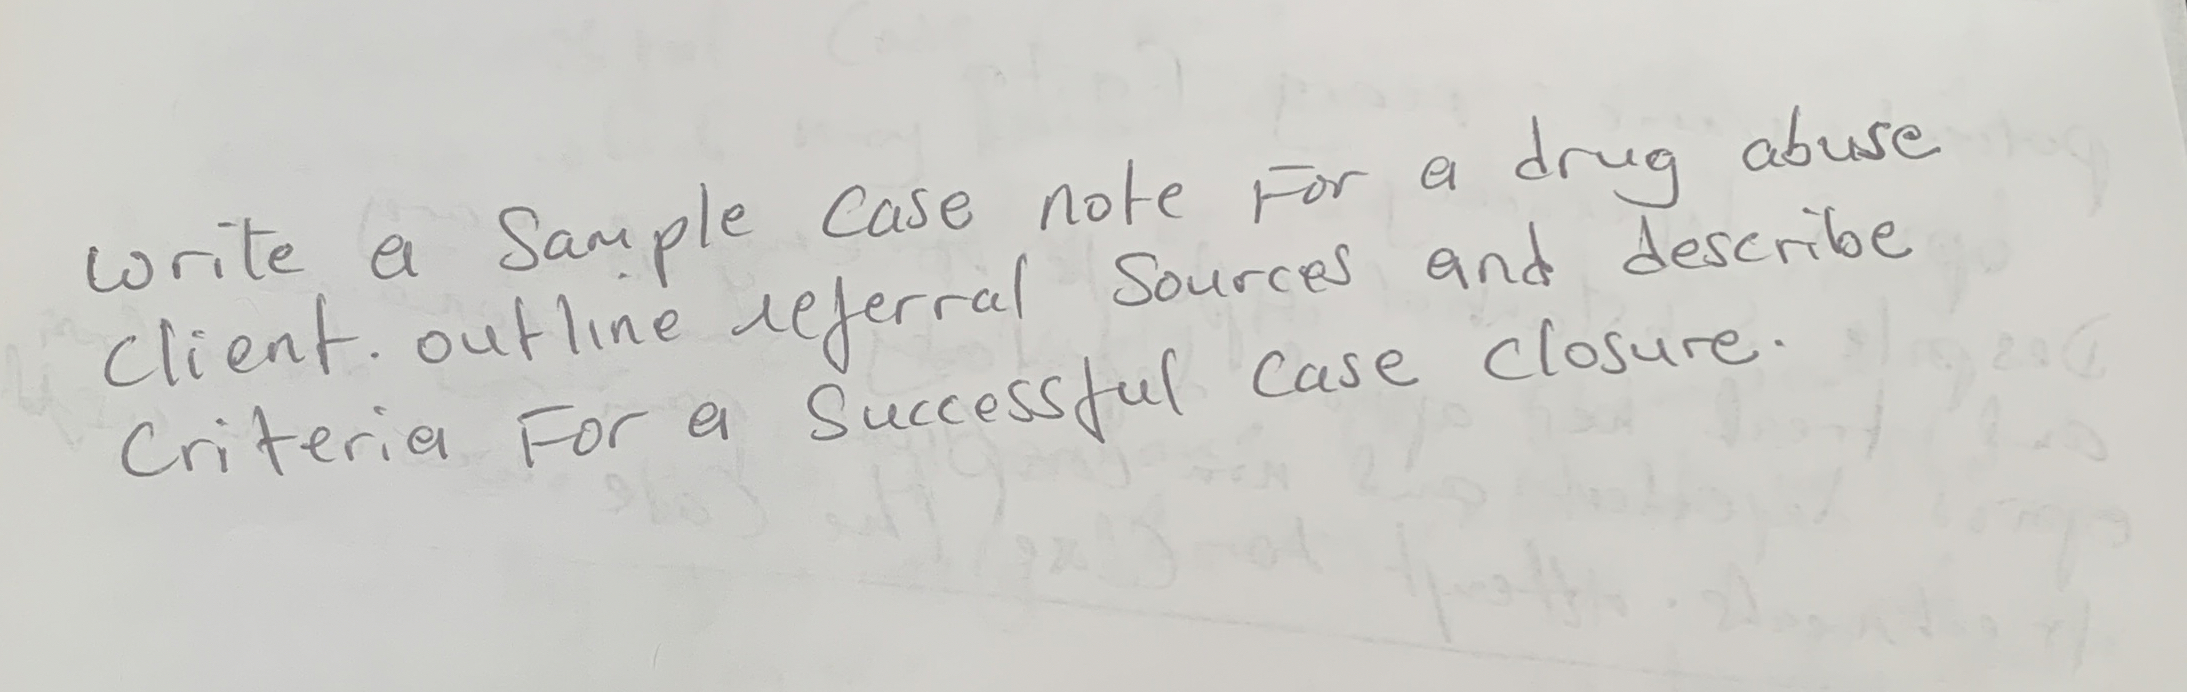 write a Sample Case note For a drug abuse
Client. outline referral Sources and describe
Criteria For a Successful Case Closure.